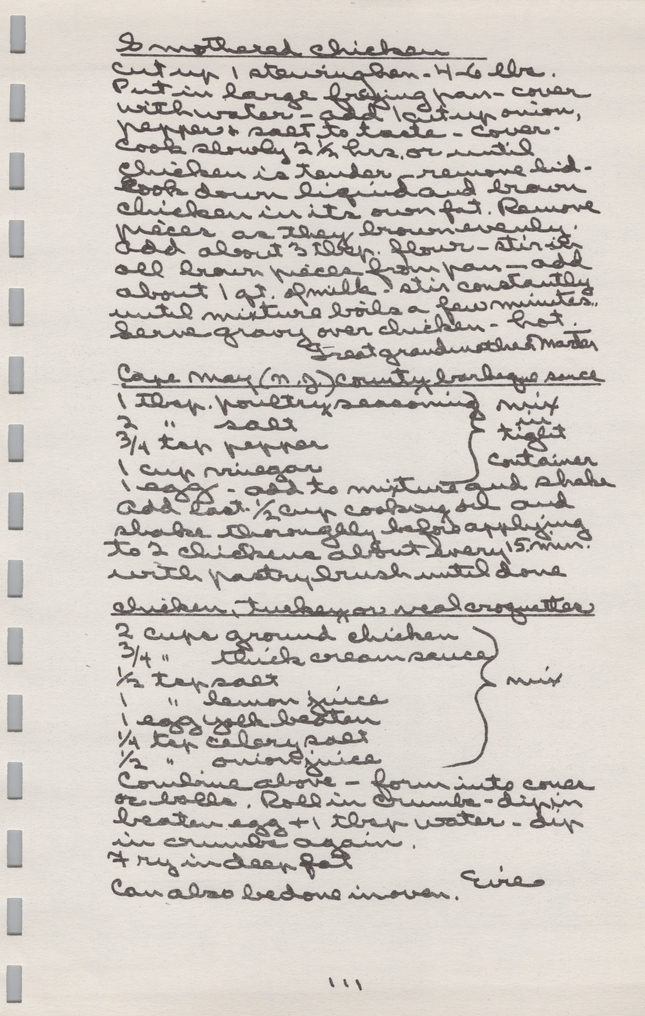 Smothered chicken
Cut up 1 stewing hen - 4-6 lbs.
Put in large frying pan - cover
with water - add 1 cut up onion,
pepper & salt to taste - cover -
Cook slowly 2 1/2 hrs. or until
chicken is tender - remove lid -
Cook down liquid and brown
chicken in its own fat. Remove
pieces as they brown evenly.
Add about 3 tbsp. flour - stir in
all brown pieces from pan - add
about 1 qt. of milk - stir constantly
until mixture boils a few minutes.
Serve gravy over chicken - hot.
Great grandmother Marter
Cape May (N.J.) County barbeque sauce
1 tbsp. poultry seasoning } mix
2 " salt in
3/4 tsp pepper tight
1 cup vinegar container
1 egg - add to mixture and shake
Add last 1/2 cup cooking oil and
shake thoroughly before applying
to 2 chickens about every 15 min.
with pastry brush until done
Chicken, turkey or veal croquettes
2 cups ground chicken
3/4 " thick cream sauce
1/2 tsp salt } mix
1 " lemon juice
1 egg yolk beaten
1/4 tsp celery salt
1/2 " onion juice
Combine above - form into cones
or balls. Roll in crumbs - dip in
beaten egg + 1 tbsp water - dip
in crumbs again.
Fry in deep fat
Can also be done in oven.
111